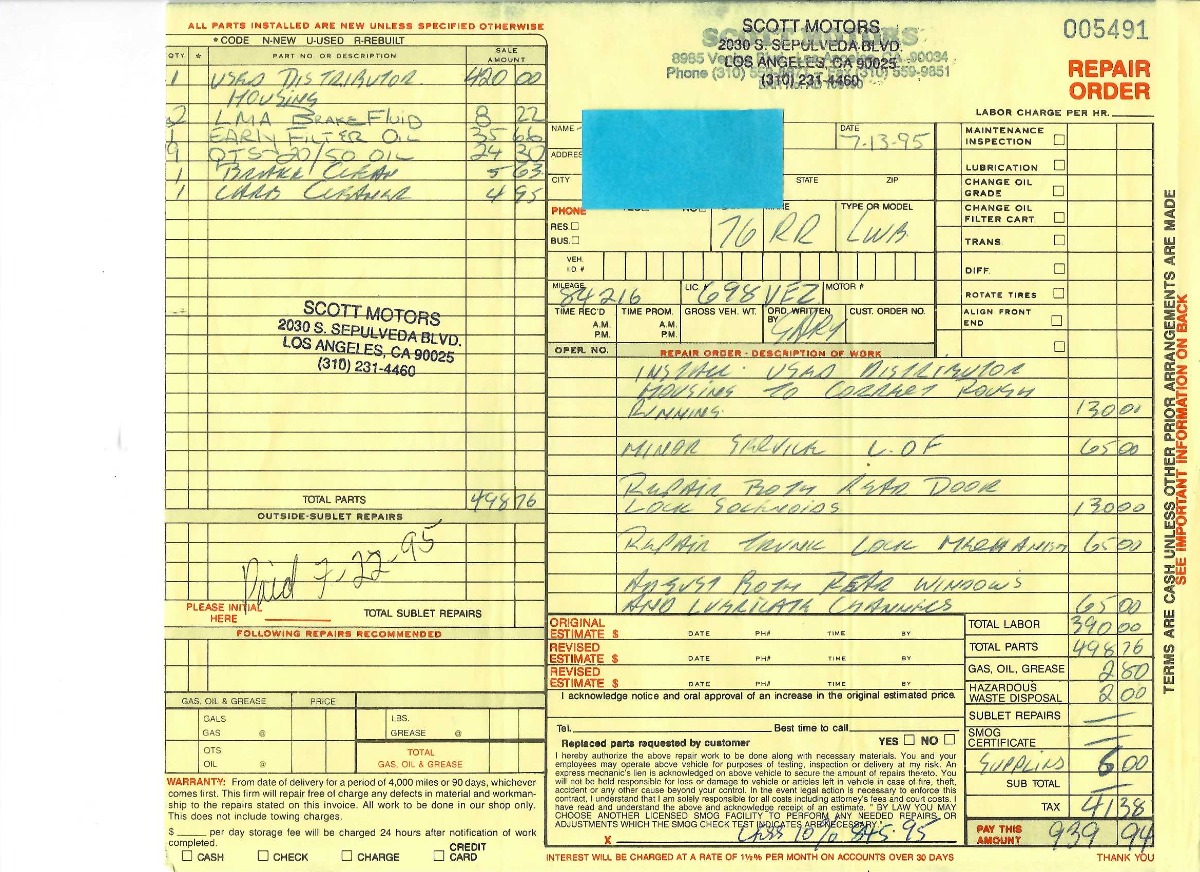 ALL PARTS INSTALLED ARE NEW UNLESS SPECIFIED OTHERWISE
* CODE N-NEW U-USED R-REBUILT
QTY * PART NO OR DESCRIPTION SALE AMOUNT
1 USED DISTRIBUTOR 420 00
HOUSING
2 LMA BRAKE FLUID 8 22
1 EARLY FILTER OIL 35 66
9 QTS-20/50 OIL 24 30
1 BRAKE CLEAN 5 63
1 CARB CLEANER 4 95
SCOTT MOTORS
2030 S. SEPULVEDA BLVD.
LOS ANGELES, CA 90025
(310) 231-4460
TOTAL PARTS 498 76
OUTSIDE-SUBLET REPAIRS
Paid 7-22-95
PLEASE INITIAL HERE
TOTAL SUBLET REPAIRS
FOLLOWING REPAIRS RECOMMENDED
GAS, OIL & GREASE PRICE
GALS GAS @ LBS. GREASE @
QTS OIL @ TOTAL GAS, OIL & GREASE
WARRANTY: From date of delivery for a period of 4,000 miles or 90 days, whichever
comes first. This firm will repair free of charge any defects in material and workman-
ship to the repairs stated on this invoice. All work to be done in our shop only.
This does not include towing charges.
$ per day storage fee will be charged 24 hours after notification of work
completed.
CASH CHECK CHARGE CREDIT CARD
SCOTT MOTORS
2030 S. SEPULVEDA BLVD.
LOS ANGELES, CA 90025
(310) 231-4460
8965 Ve CA 90034
Phone (310) 55 (310) 559-9851
005491
REPAIR
ORDER
LABOR CHARGE PER HR.
NAME DATE 7-13-95
ADDRES
CITY STATE ZIP
PHONE
RES.
BUS.
76 RR TYPE OR MODEL LWB
VEH. I.D. #
MILEAGE 84216 LIC. 698 VEZ MOTOR #
TIME REC'D A.M. P.M. TIME PROM. A.M. P.M. GROSS VEH. WT. ORD. WRITTEN BY GARY CUST. ORDER NO.
MAINTENANCE INSPECTION
LUBRICATION
CHANGE OIL GRADE
CHANGE OIL FILTER CART
TRANS.
DIFF.
ROTATE TIRES
ALIGN FRONT END
OPER. NO. REPAIR ORDER - DESCRIPTION OF WORK
INSTALL USED DISTRIBUTOR
HOUSING TO CORRECT ROUGH
RUNNING. 130 00
MINOR SERVICE L.O.F 65 00
REPAIR BOTH REAR DOOR
LOCK SOLENOIDS 130 00
REPAIR TRUNK LOCK MECHANISM 65 00
ADJUST BOTH REAR WINDOWS
AND LUBRICATE CHANNELS 65 00
ORIGINAL ESTIMATE $ DATE PH# TIME BY
REVISED ESTIMATE $ DATE PH# TIME BY
REVISED ESTIMATE $ DATE PH# TIME BY
I acknowledge notice and oral approval of an increase in the original estimated price.
Tel. Best time to call
Replaced parts requested by customer YES NO
I hereby authorize the above repair work to be done along with necessary materials. You and your
employees may operate above vehicle for purposes of testing, inspection or delivery at my risk. An
express mechanic's lien is acknowledged on above vehicle to secure the amount of repairs thereto. You
will not be held responsible for loss or damage to vehicle or articles left in vehicle in case of fire, theft,
accident or any other cause beyond your control. In the event legal action is necessary to enforce this
contract, I understand that I am solely responsible for all costs including attorney's fees and court costs. I
have read and understand the above and acknowledge receipt of an estimate. " BY LAW YOU MAY
CHOOSE ANOTHER LICENSED SMOG FACILITY TO PERFORM ANY NEEDED REPAIRS OR
ADJUSTMENTS WHICH THE SMOG CHECK TEST INDICATES ARE NECESSARY."
X 10% 95
TOTAL LABOR 390 00
TOTAL PARTS 498 76
GAS, OIL, GREASE 2 80
HAZARDOUS WASTE DISPOSAL 2 00
SUBLET REPAIRS —
SMOG CERTIFICATE —
SUPPLIES 5 00
SUB TOTAL
TAX 41 38
PAY THIS AMOUNT 939 94
INTEREST WILL BE CHARGED AT A RATE OF 1½% PER MONTH ON ACCOUNTS OVER 30 DAYS
THANK YOU
TERMS ARE CASH UNLESS OTHER PRIOR ARRANGEMENTS ARE MADE
SEE IMPORTANT INFORMATION ON BACK